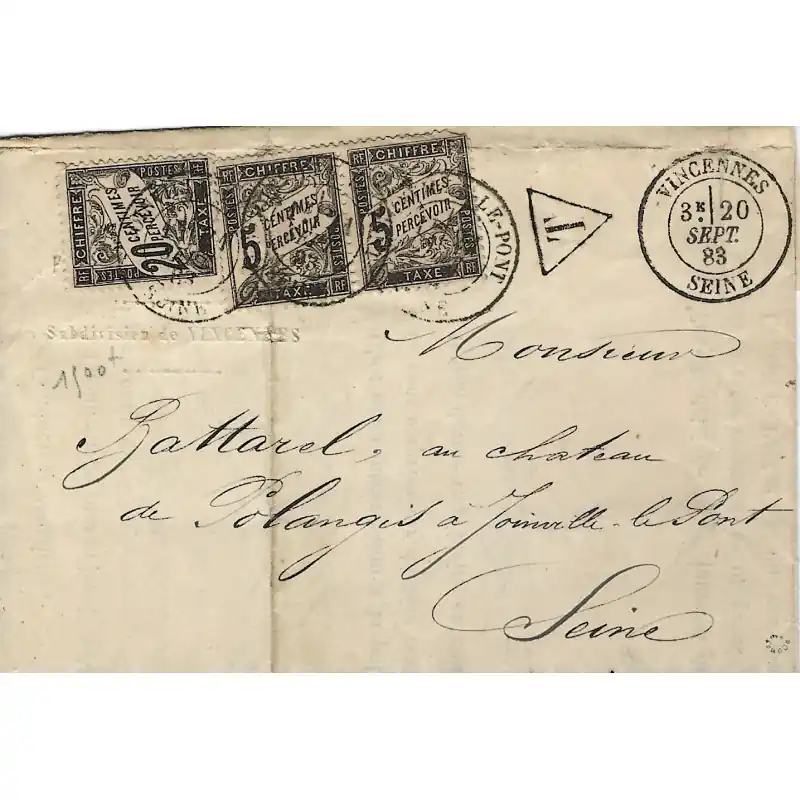 CHIFFRE
POSTES
20
CENTIMES
À
PERCEVOIR
TAXE
POSTES
RF
RF
CHIFFRE
POSTES
5
CENTIMES
À
PERCEVOIR
TAXE
RF
RF
CHIFFRE
POSTES
5
CENTIMES
À
PERCEVOIR
TAXE
RF
LE-PONT
SEINE
T
VINCENNES
3E 20
SEPT.
83
SEINE
Subdivision de VINCENNES
1500+
Monsieur
Battarel, au chateau
de Polangis à Joinville-le-Pont
Seine